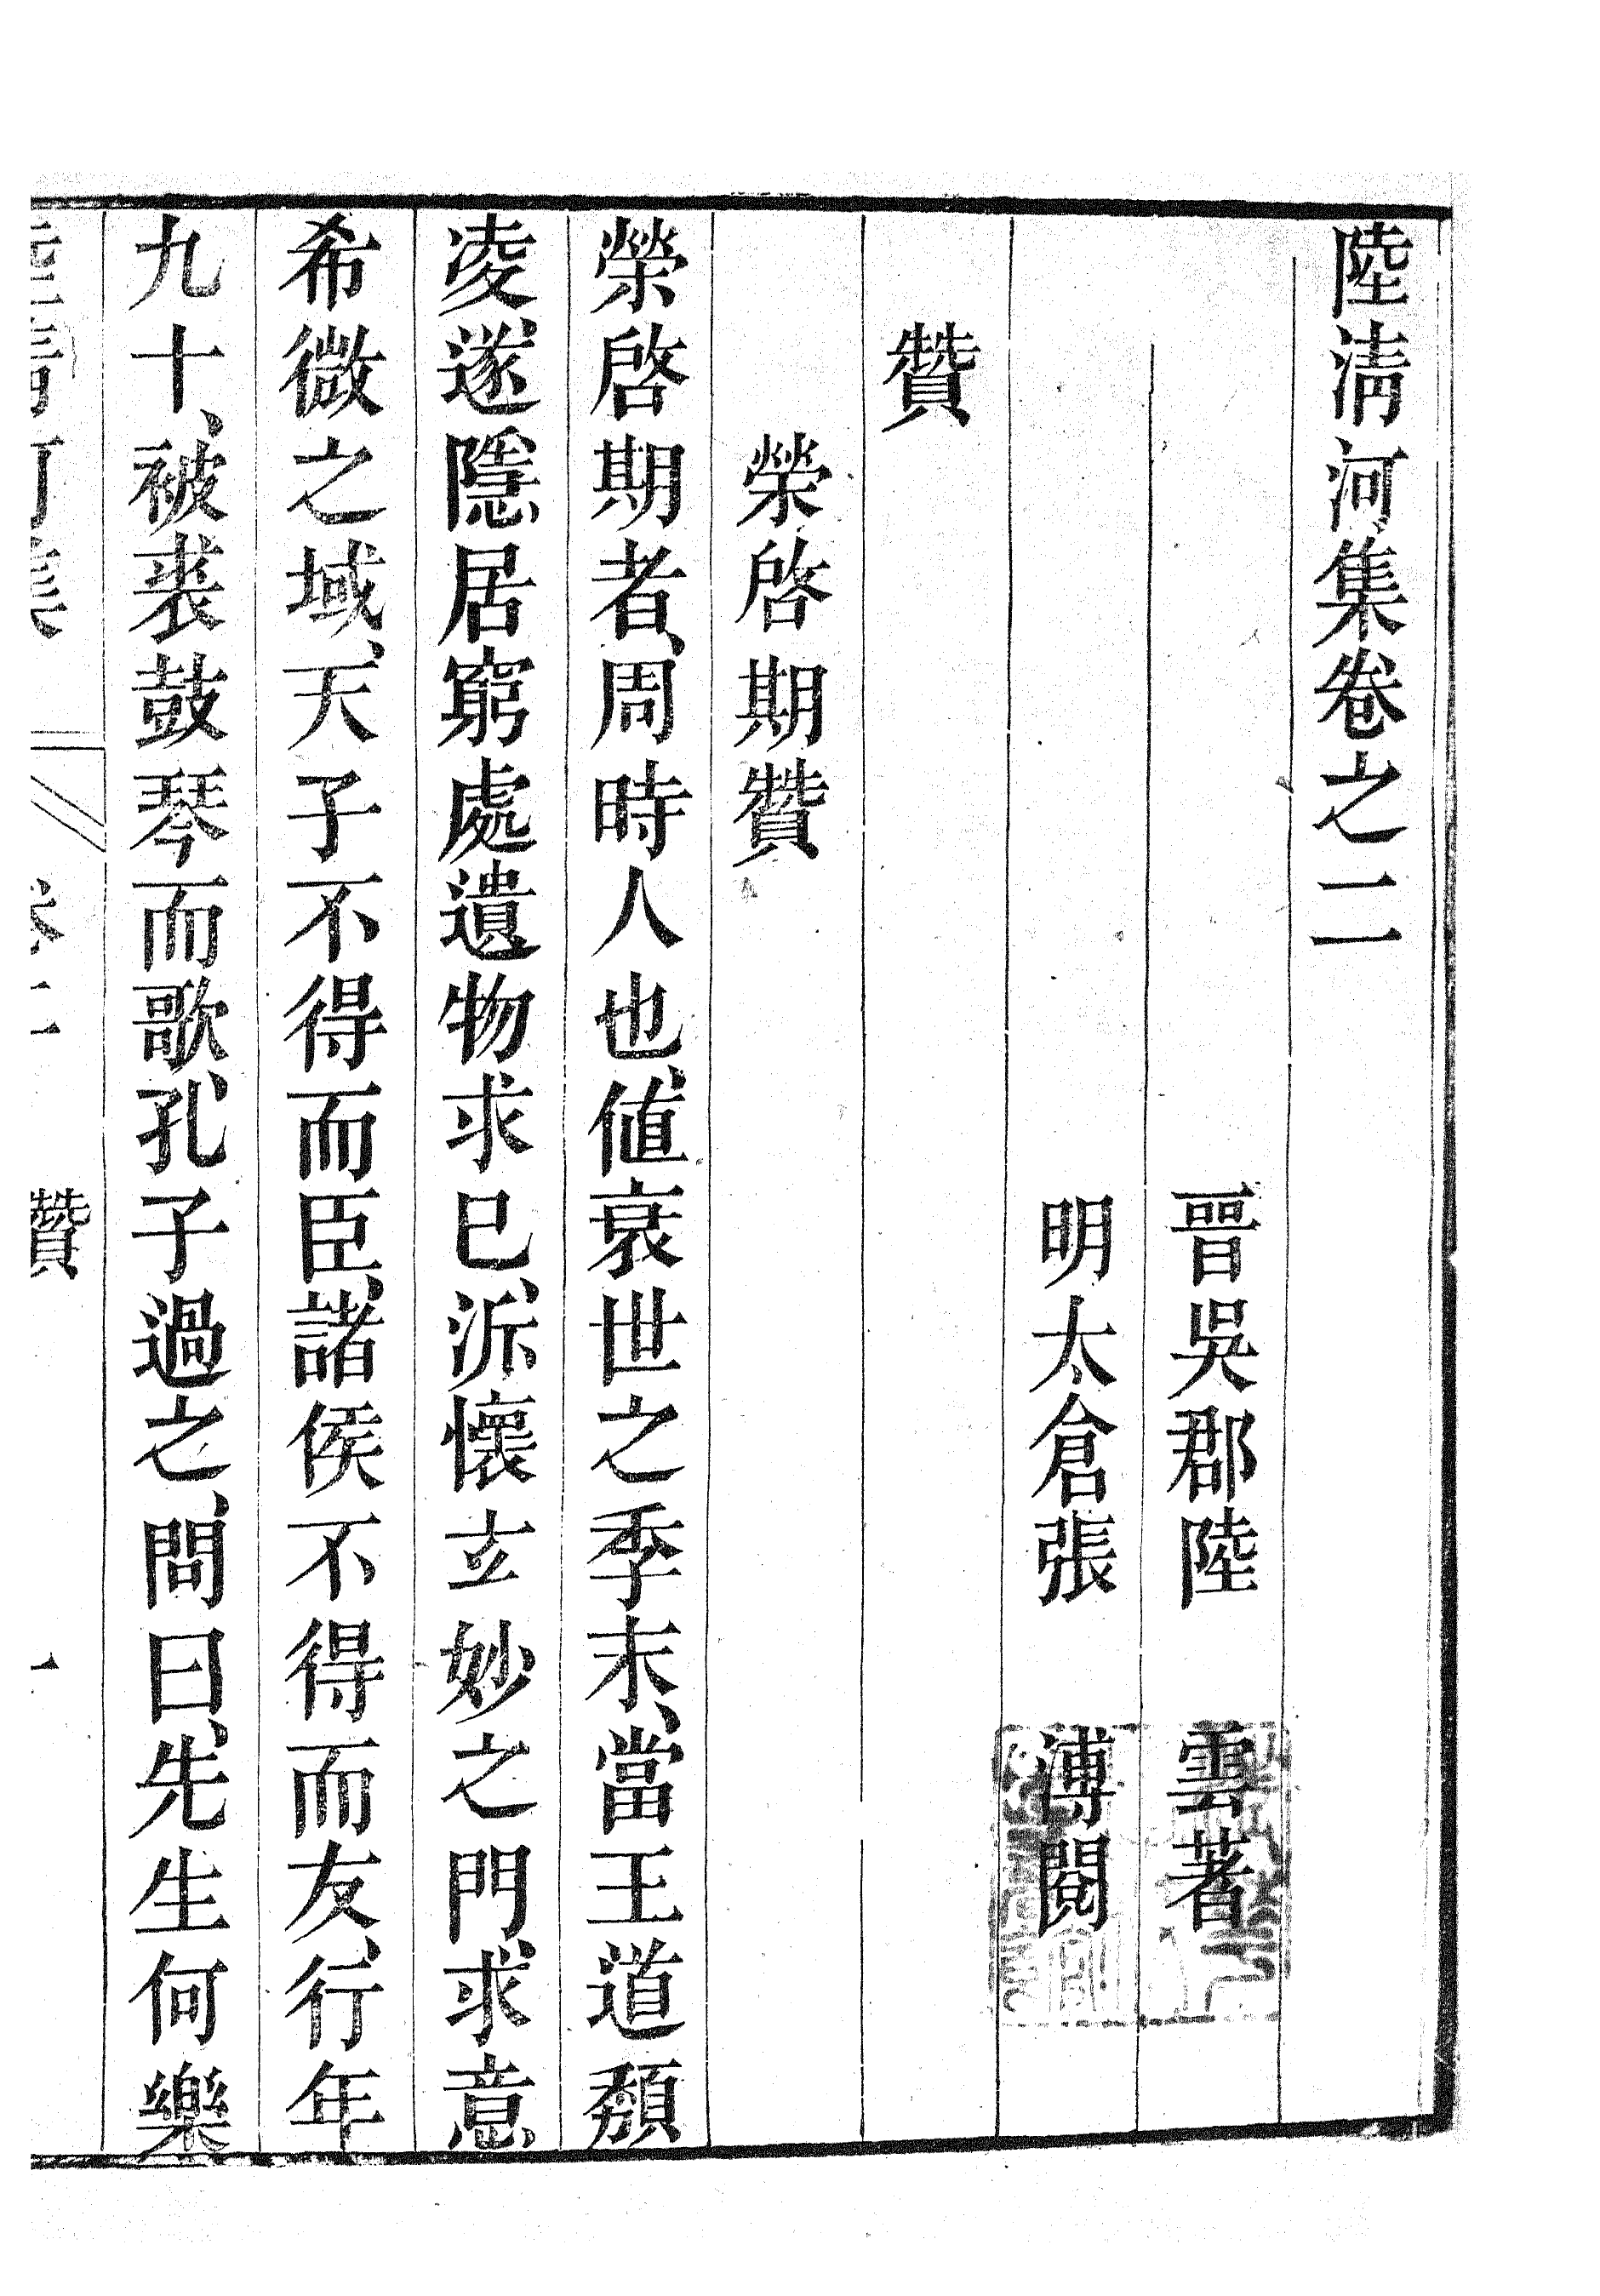 陸清河集卷之二
晉吳郡陸 雲著
明太倉張 溥閱
贊
榮啓期贊
榮啓期者、周時人也、値衰世之季末、當王道頹
凌、遂隱居窮處遺物求已、泝懷玄妙之門、求意
希微之域、天子不得而臣、諸侯不得而友、行年
九十、被裘鼓琴而歌、孔子過之、問曰、先生何樂
陸清河集 卷二 贊 一